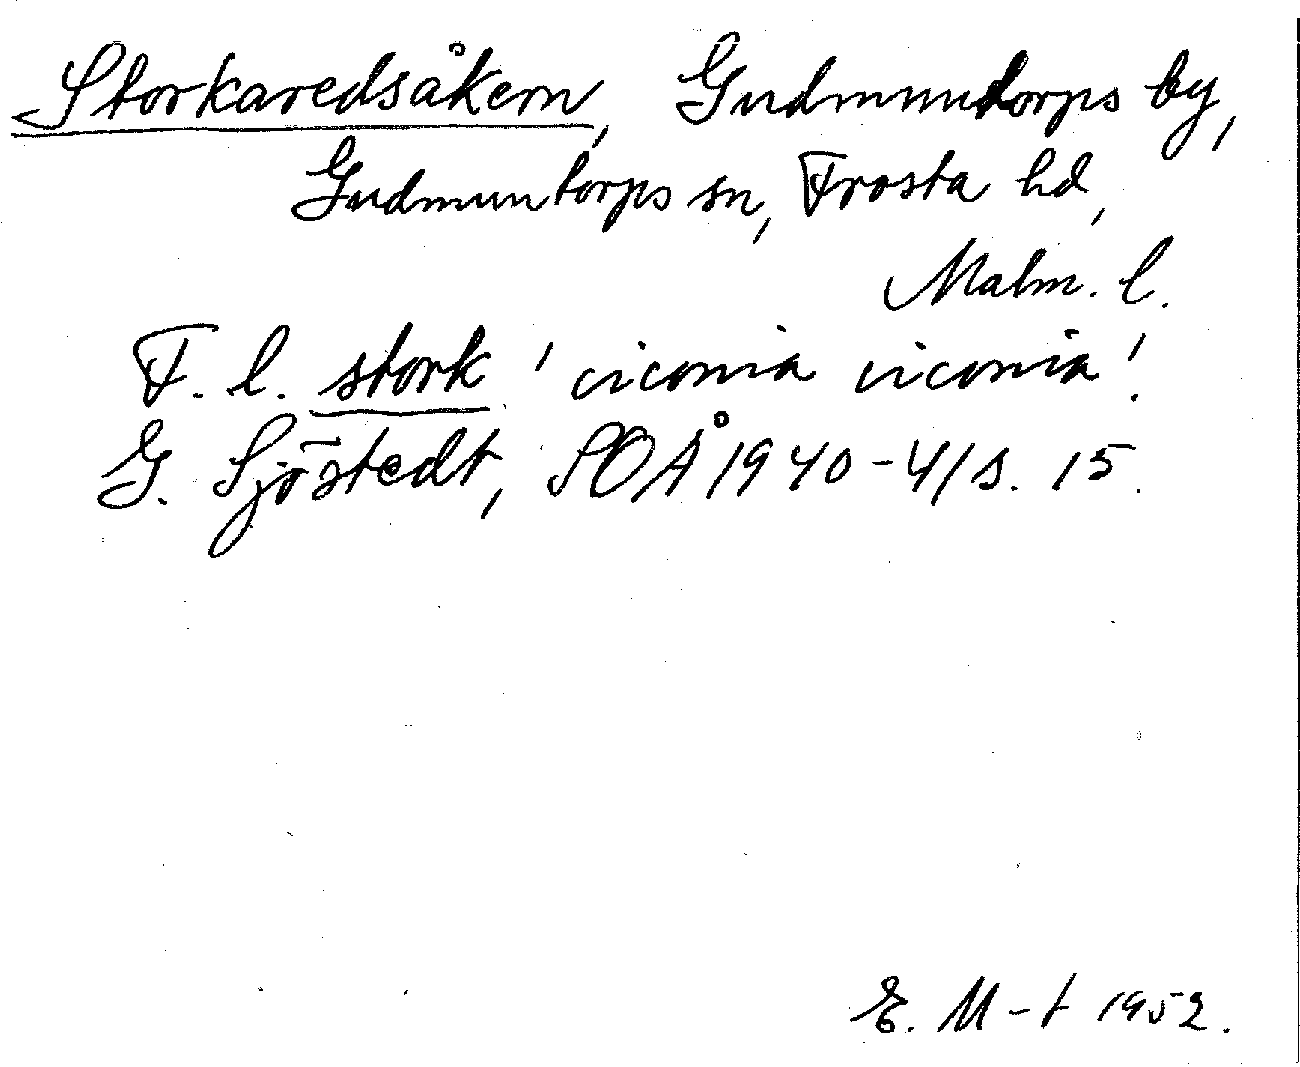 Storkaredsåkern, Gudmundtorps by,
Gudmuntorps sn, Frosta hd,
Malm. l.
F. l. stork 'ciconia ciconia'.
G. Sjöstedt, SOÅ 1940-41 s. 15.
E. M-t 1952.